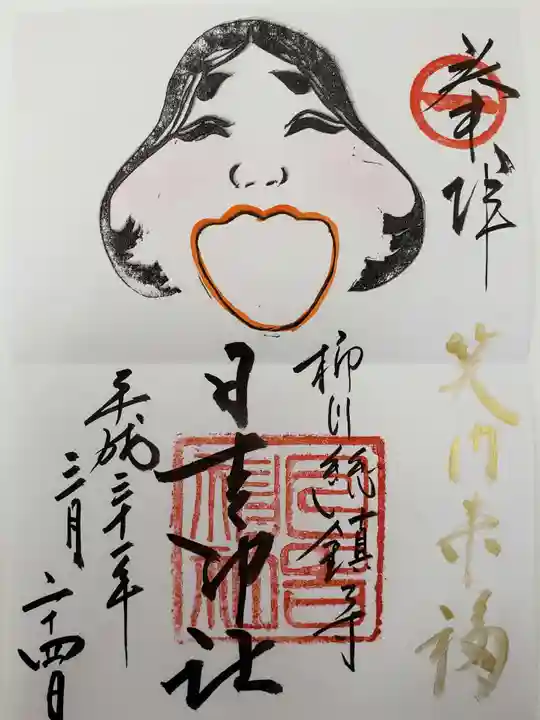 奉拝
笑門来福
柳川総鎮守
日吉神社
平成三十一年
三月二十四日
日吉神社